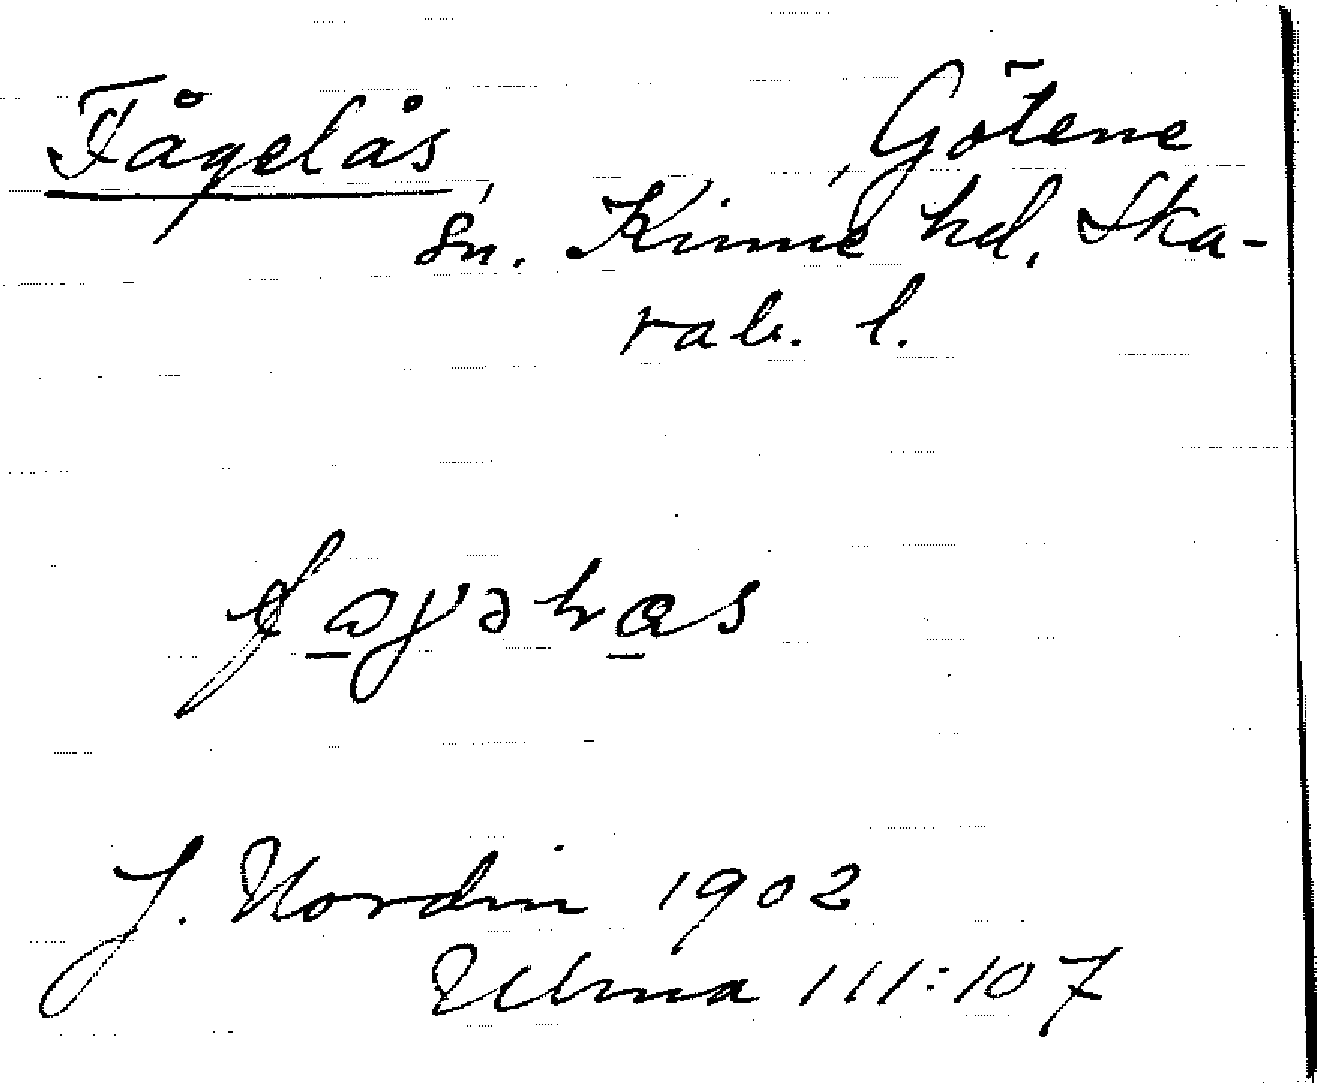 Fågelås
Götene
sn. Kinne hd. Ska-
rab. l.
J. Nordin 1902
Ulma 111:107